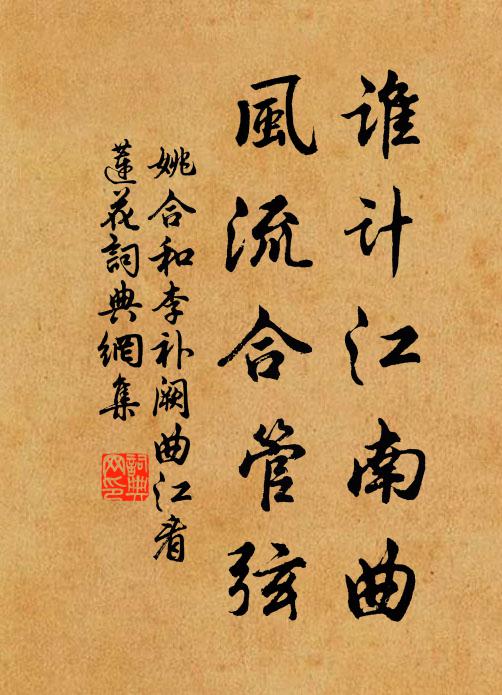 誰计江南曲
風流合管弦
姚合和李补阙曲江看
蓮花詞典網集
詞典网印